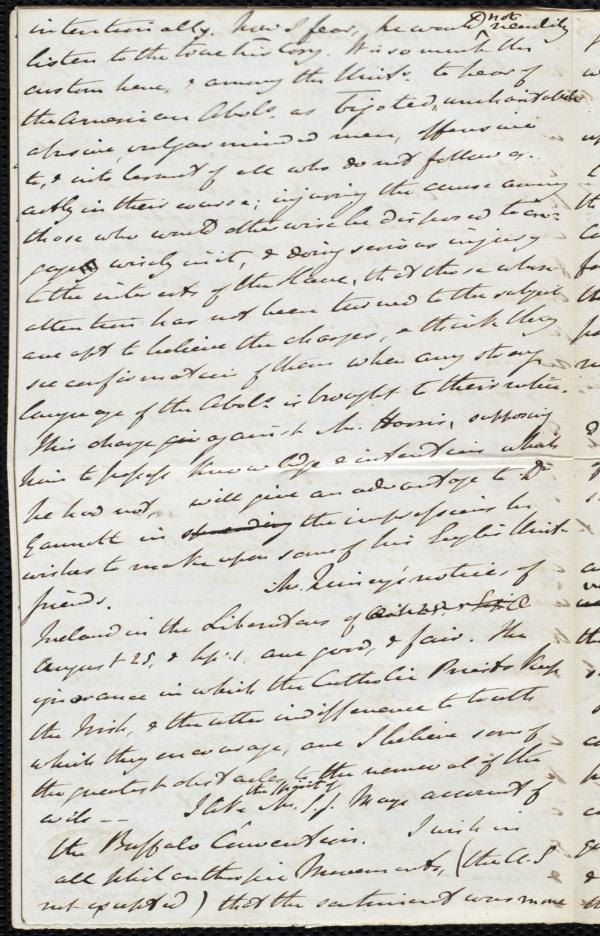 intentionally. Now I fear, he would not readily
listen to the true history. It is so much the
custom here, & among the Units. to hear of
the American Abols. as bigoted, uncharitable
abusive, vulgar minded men, offensive
to, & intolerant of all who do not follow ex-
actly in their course; injuring the cause among
those who would otherwise be disposed to en-
gage wisely in it, & doing serious injury
to the interests of the Slave, that those whose
attention has not been turned to the subject
are apt to believe the charges, & think they
see confirmation of them when any strong
language of the Abols. is brought to their notice.
This charge against Mr. Harris, supposing
him to possess knowledge & intentions which
he had not, will give an advantage to Dr
Gannett in the impressions he
wishes to make upon some of his English Unit.
friends. Mr. Quincy's notices of
Ireland in the Liberators of
August 25, & Sep. 1. are good, & fair. The
ignorance in which the Catholic Priests keep
the Irish, & the utter indifference to truth
which they encourage, are I believe some of
the greatest obstacles to the removal of the
evils -- I like the spirit of Mr. S. J. Mays account of
the Buffalo Convention. I wish in
all philanthropic Movements, (the A. S
not excepted) that the sentiment was more